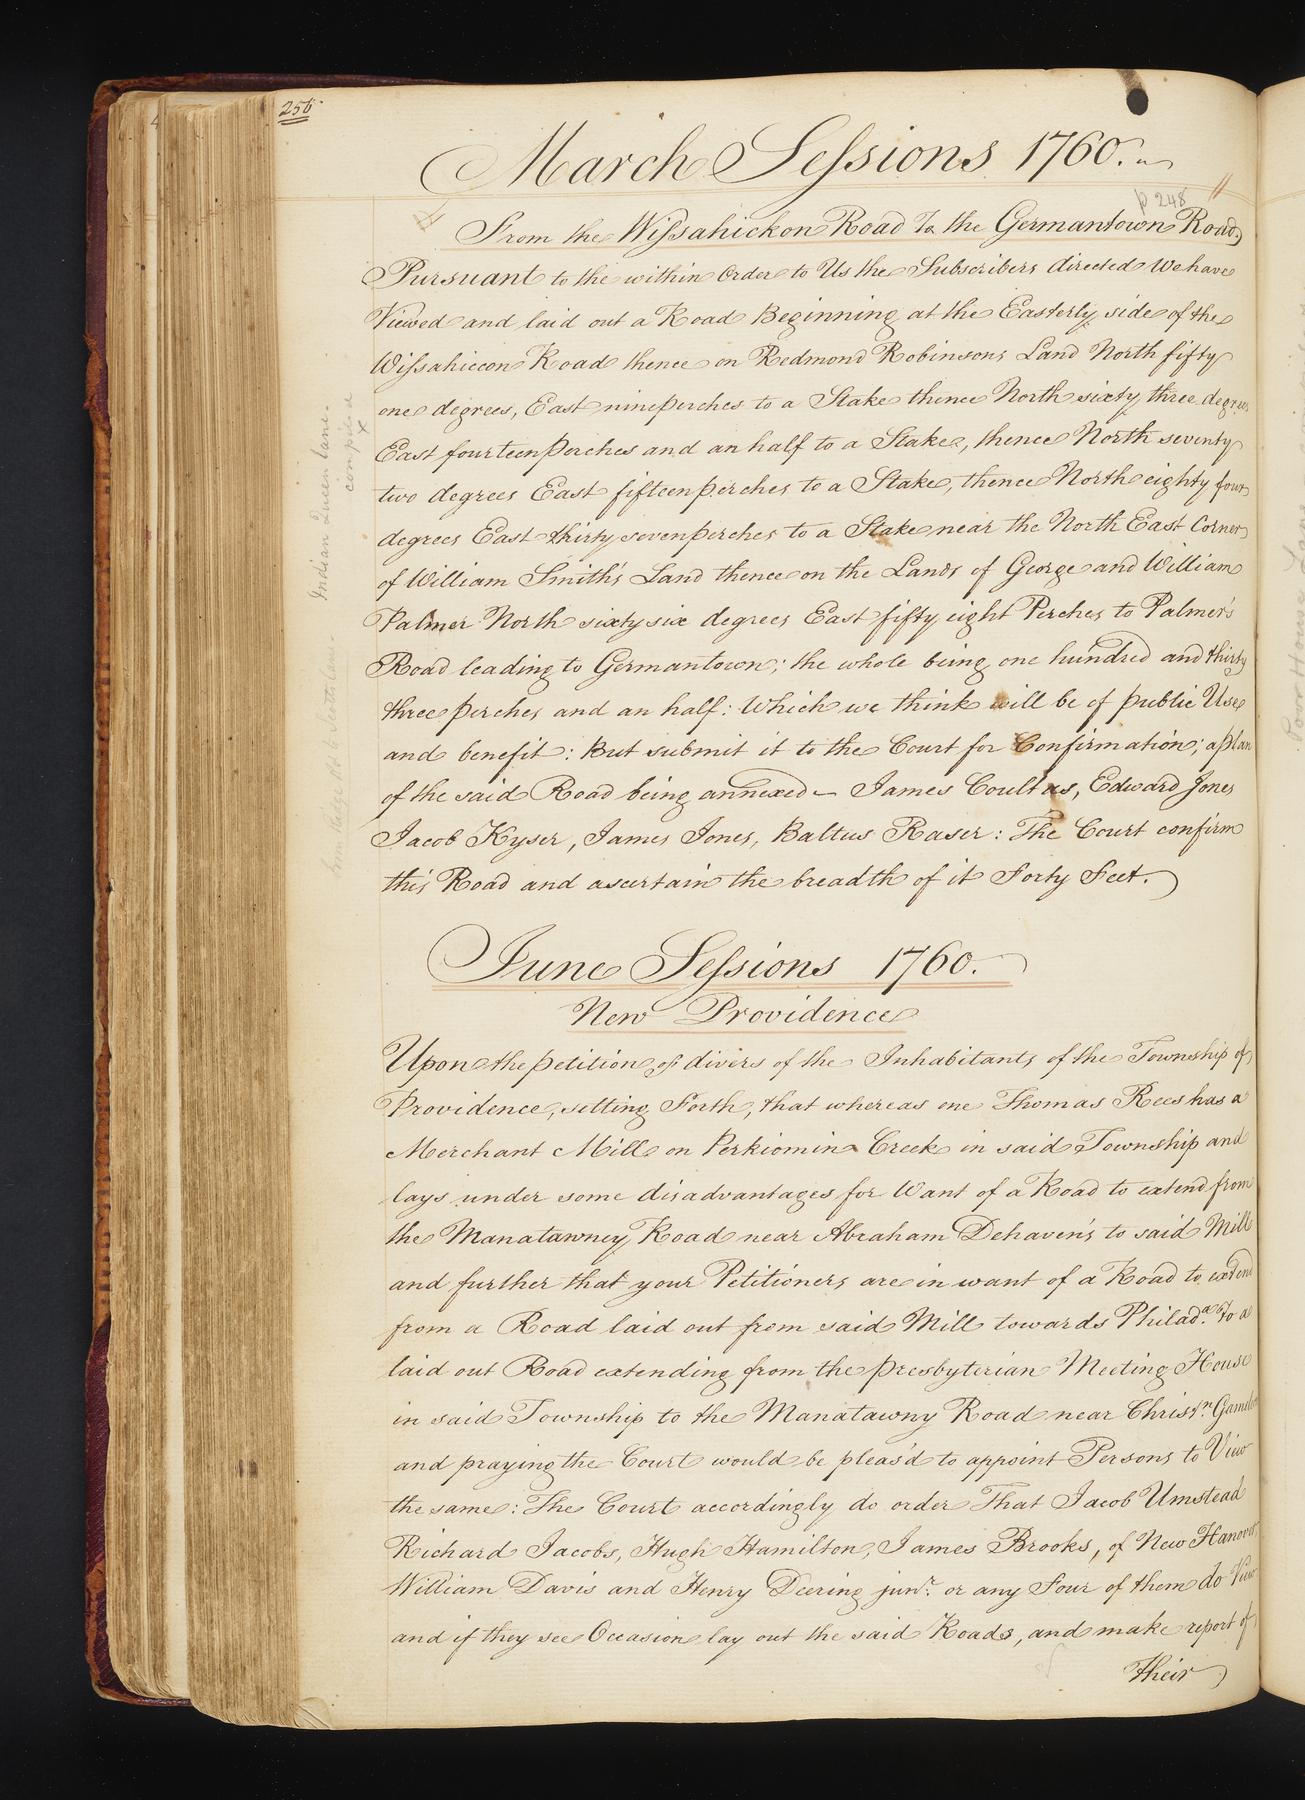 256
March Sessions 1760.
p 248
From the Wissahickon Road To the Germantown Road
Pursuant to the within Order to Us the Subscribers directed We have
Viewed and laid out a Road Beginning at the Easterly side of the
Wissahiccon Road thence on Redmond Robinsons Land North fifty
one degrees, East nine perches to a Stake thence North sixty three degrees
East fourteen perches and an half to a Stake, thence North seventy
two degrees East fifteen perches to a Stake, thence North eighty four
degrees East thirty seven perches to a Stake near the North East Corner
of William Smith's Land thence on the Lands of George and William
Palmer North sixty six degrees East fifty eight Perches to Palmer's
Road leading to Germantown; the whole being one hundred and thirty
three perches and an half: Which we think will be of public Use
and benefit: But submit it to the Court for Confirmation; a plan
of the said Road being annexed – James Coultas, Edward Jones
Jacob Kyser, James Jones, Baltus Raser: The Court confirm
this Road and ascertain the breadth of it Forty Feet.
Indian Queen lane
compd
x
June Sessions 1760.
New Providence
Upon the petition of divers of the Inhabitants of the Township of
Providence, setting Forth, that whereas one Thomas Rees has a
Merchant Mill on Perkiomin Creek in said Township and
lays under some disadvantages for Want of a Road to extend from
the Manatawney Road near Abraham Dehaven's to said Mill
and further that your Petitioners are in want of a Road to extend
from a Road laid out from said Mill towards Philada. to a
laid out Road extending from the presbyterian Meeting House
in said Township to the Manatawny Road near Christn.
and praying the Court would be pleas'd to appoint Persons to View
the same: The Court accordingly do order That Jacob Umstead
Richard Jacobs, Hugh Hamilton, James Brooks, of New Hanover
William Davis and Henry Deering junr. or any Four of them do View
and if they see Occasion lay out the said Roads, and make report of
Their